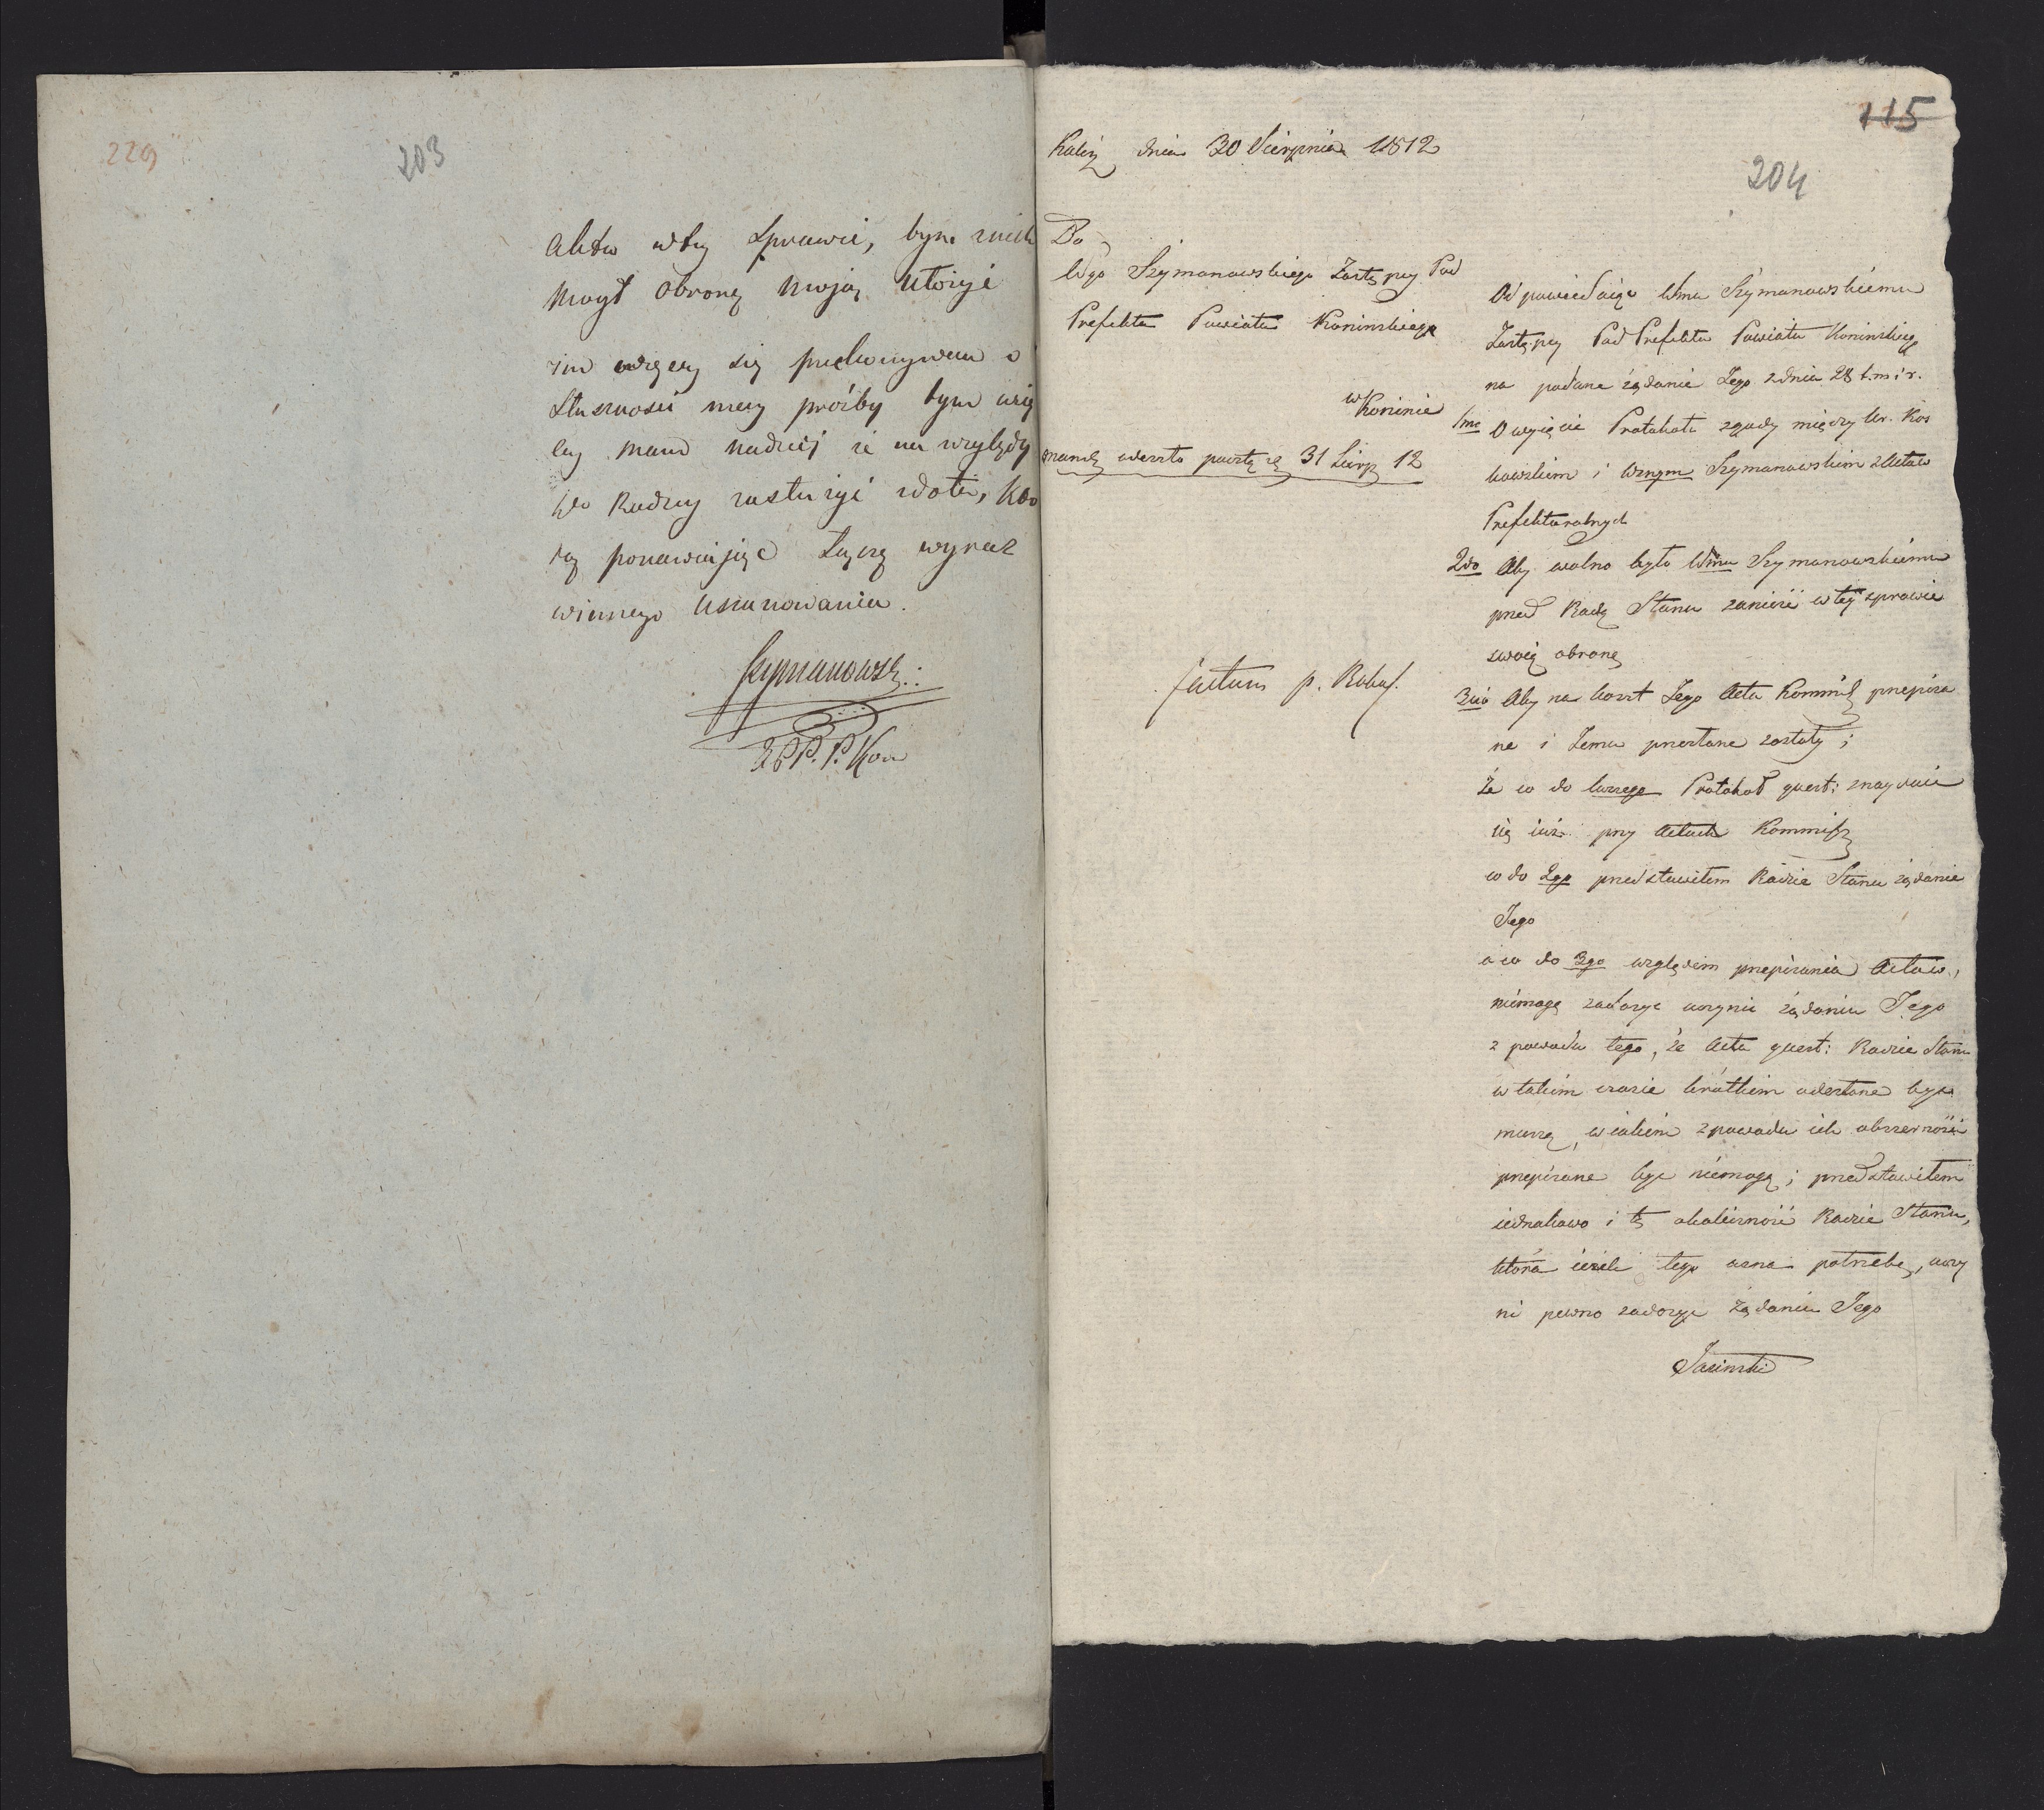 229
203
Aktw w tey Sprawie, bym z nich
mogł obronę moją ułożyć
im więcey się przekonywam o
słuszności mey prośby tym wię
cey mam nadzieję że na względy
ponawiając łączę wyraz
winnego uszanowania.
Szymanowski
Z P P. P. Kon
115
204
Kalisz dnia 30 Sierpnia 1812
Do
Wgo Szymanowskiego Zastępcy Pod
Prefekta Powiatu Koninskiego
w Koninie
mundẽ odeszło pocztą d. 31 Sierp 12
factum p.
Odpowiedaiąc Wmu Szymanowskiemu
Zastępcy Pod Prefekta Powiatu Koninskieg
na podane żądanie Jego z dnia 28 b. m i r.
1mo O wyięcie Protokołu zgody między Ur. Kos
kowskim i Wznym Szymanowskim z Aktow
Prefekturalnych
2do Aby wolno było Wmu Szymanowskiemu
przed Radą Stanu zanieść w tey sprawie
swoię obronę
3tio Aby na koszt Jego Acta Kommiss przepisa
ne i Jemu przesłane zostały;
Że co do 1wszego Protokoł quest: znayduie
się iuż przy Actach Kommiss
co do 2go przedstawiłem Radzie Stanu żądanie
Jego
a co do 3go względem przepisania Actow,
niemogę zadosyc uczynić żądaniu Jego
z powodu tego, że Acta quest: Radzie Stanu
w takim czasie krótkim odesłane byc
muszą, w iakim z powodu ich obszerności
przepisane byc niemogą; przedstawiłem
iednakowo i tę okoliczność Radzie Stanu,
która ieżeli tego uzna potrzebę, uczy
ni pewno zadosyc żądaniu Jego
Jasinski